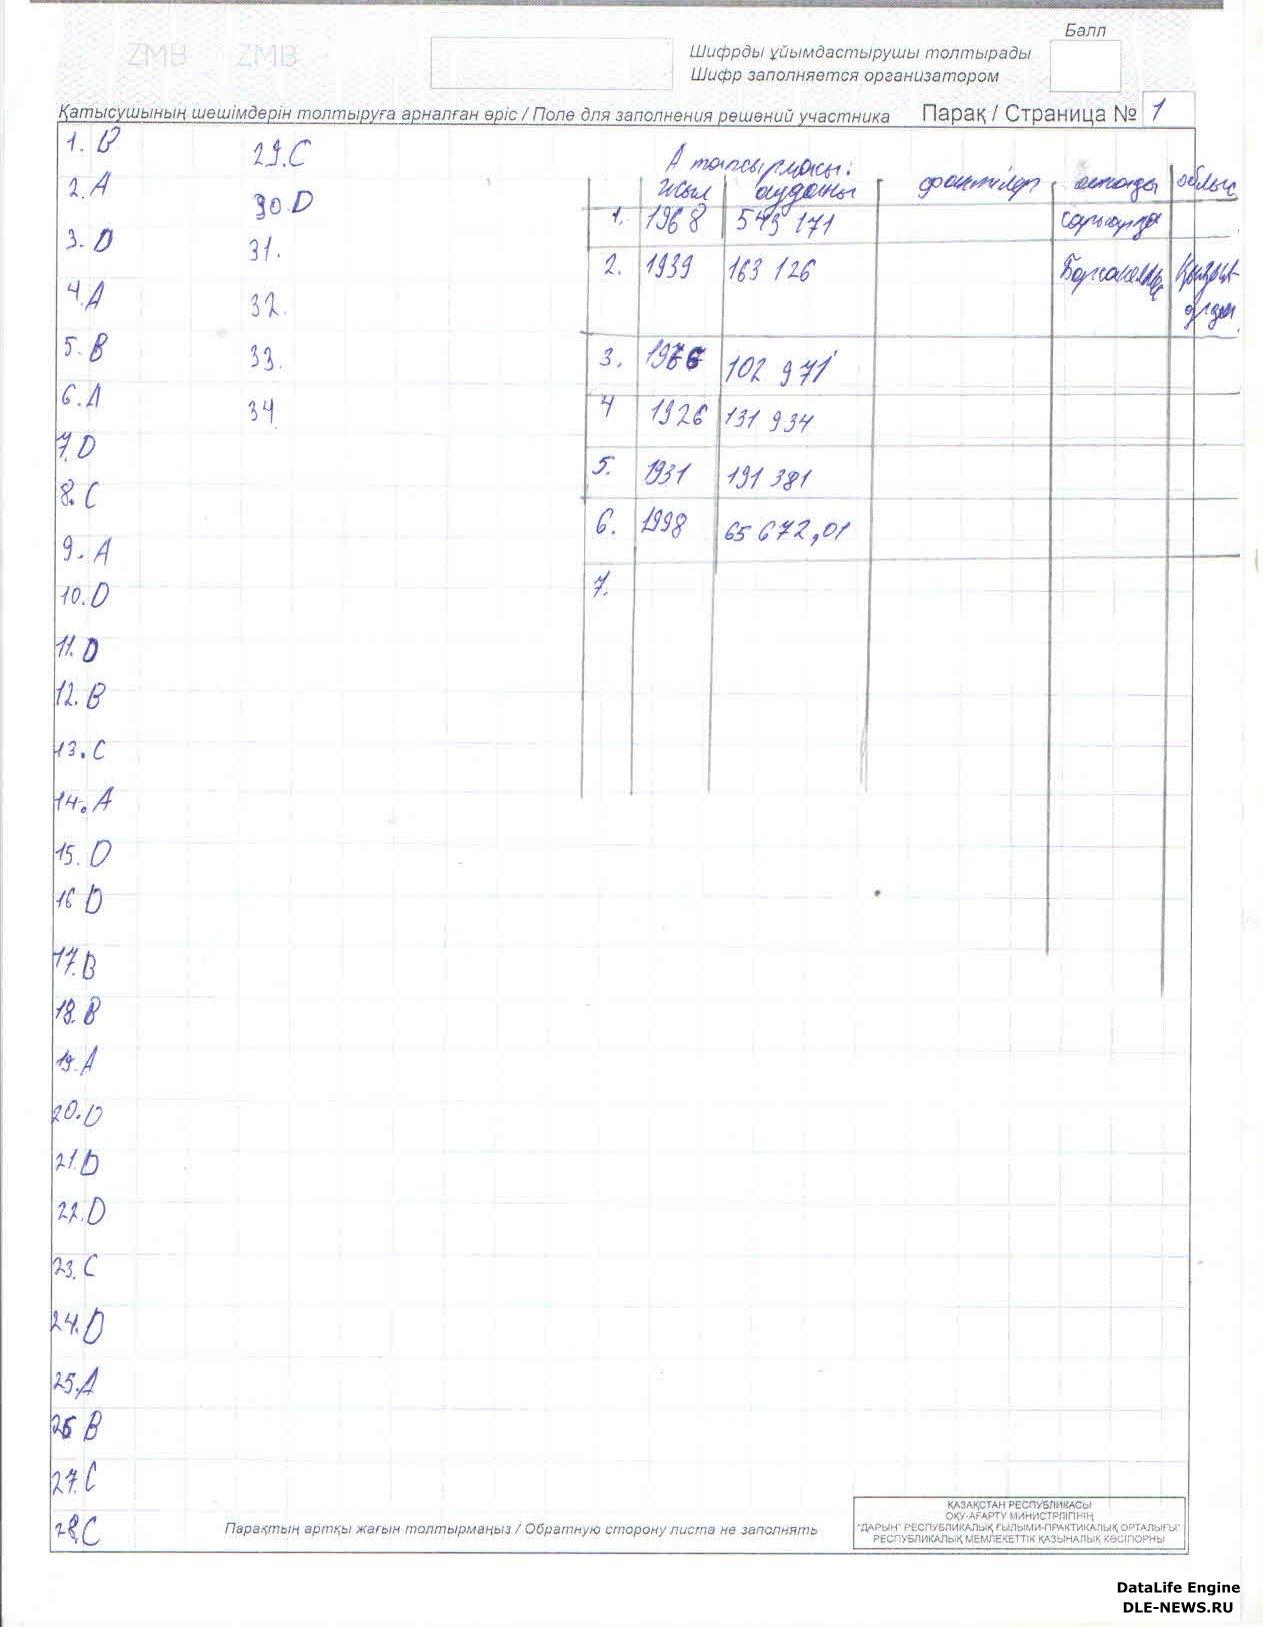 ZMB ZMB
Балл
Шифрды ұйымдастырушы толтырады
Шифр заполняется организатором
Қатысушының шешімдерін толтыруға арналған өріс / Поле для заполнения решений участника
Парақ / Страница № 1
1. B
2. A
3. D
4. A
5. B
6. A
7. D
8. C
9. A
10. D
11. D
12. B
13. C
14. A
15. D
16 D
17. B
18. B
19. A
20. D
21. D
22. D
23. C
24. D
25. A
26 B
27. C
28. C
29. C
30. D
31.
32.
33.
34
А тапсырмасы:
жыл ауданы фактілер облыс
1. 1968 543 171 сарыарқа
2. 1939 163 126 Қызыл-
3. 1976 102 971
4 1926 131 934
5. 1931 191 381
6. 1998 65 672,01
7.
Парақтың артқы жағын толтырмаңыз / Обратную сторону листа не заполнять
ҚАЗАҚСТАН РЕСПУБЛИКАСЫ
ОҚУ-АҒАРТУ МИНИСТРЛІГІНІҢ
"ДАРЫН" РЕСПУБЛИКАЛЫҚ ҒЫЛЫМИ-ПРАКТИКАЛЫҚ ОРТАЛЫҒЫ"
РЕСПУБЛИКАЛЫҚ МЕМЛЕКЕТТІК ҚАЗЫНАЛЫҚ КӘСІПОРНЫ
DataLife Engine
DLE-NEWS.RU